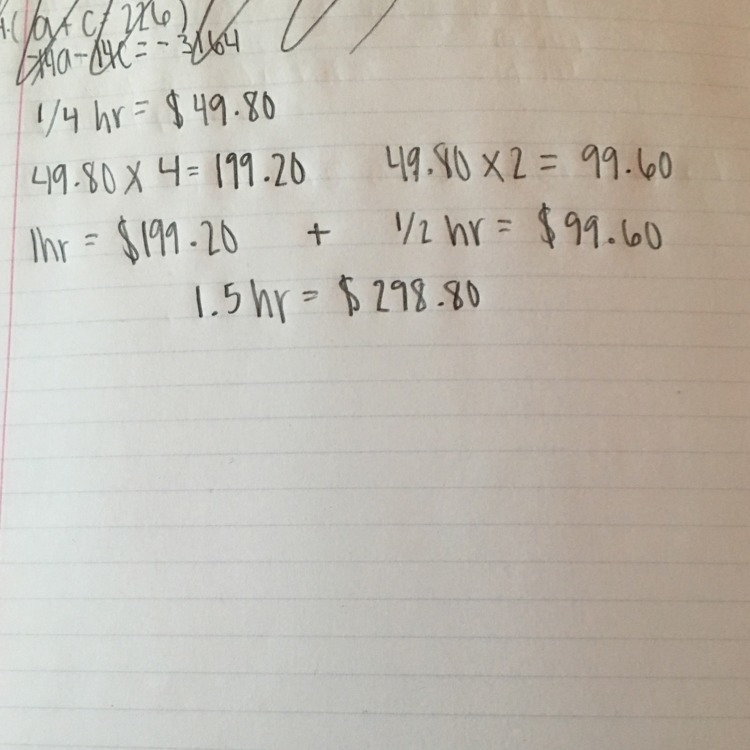 (a + c = 226)
-14a - 14c = -3164
1/4 hr = $49.80
49.80 X 4 = 199.20 49.80 X 2 = 99.60
1hr = $199.20 + 1/2 hr = $99.60
1.5 hr = $298.80